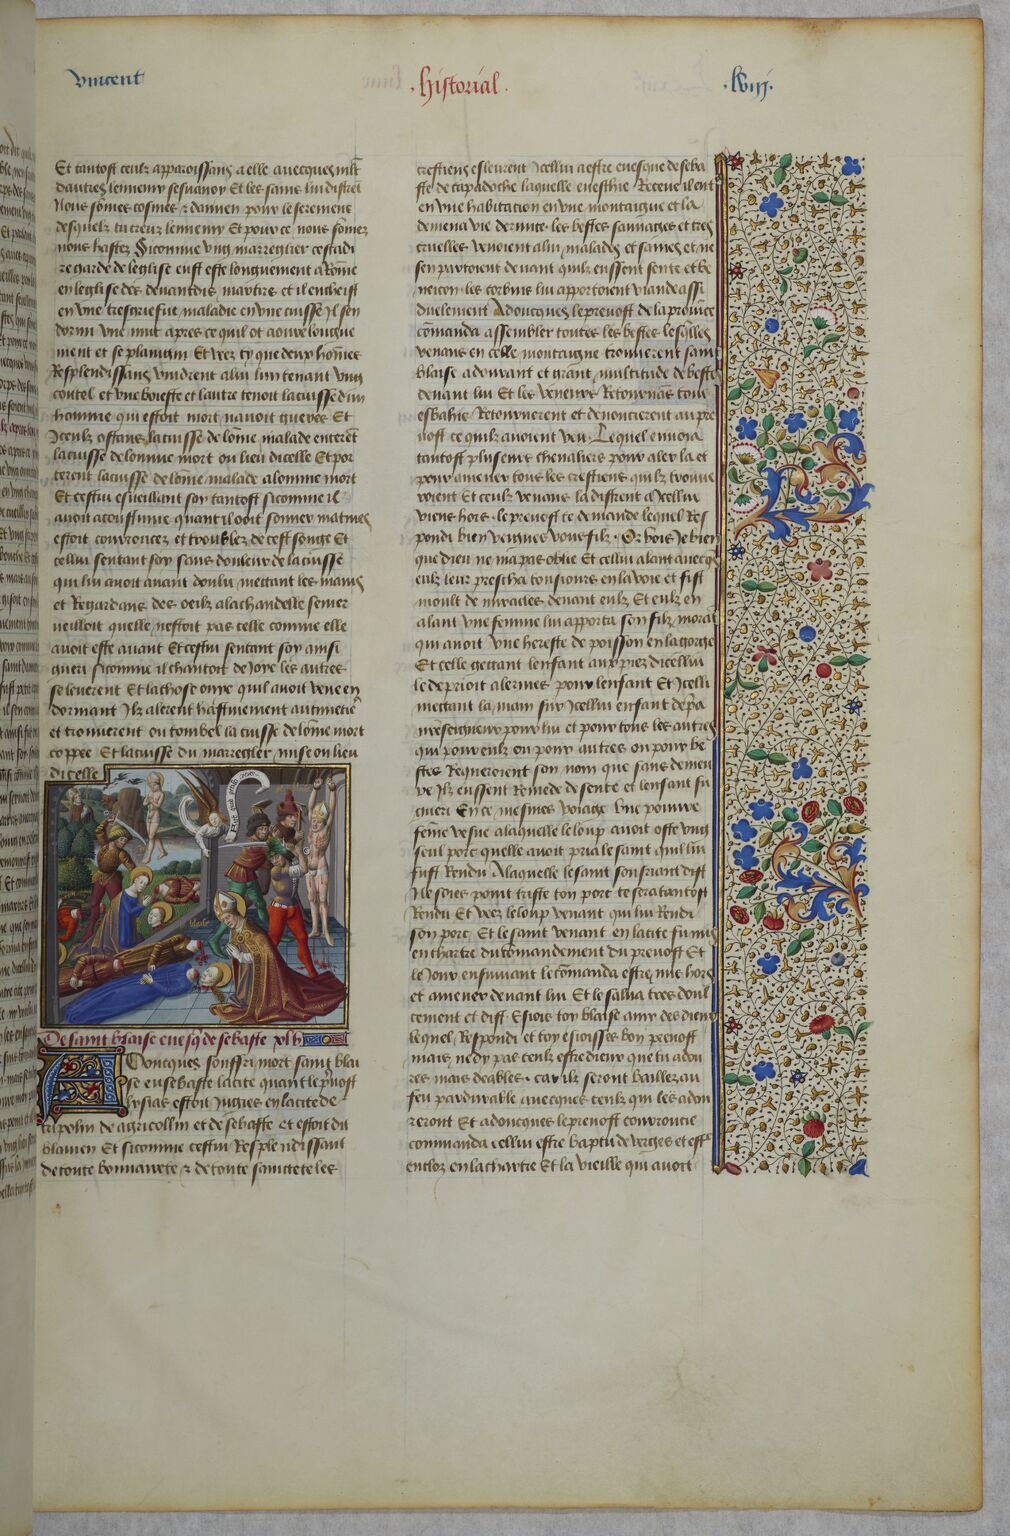 Vincent
.historial.
.lviij.
Et tantost ceulz apparoissans a elle avecques
dautres lennemy sesvanoy Et les sains lui distrent
Nous sõmes cosmes & damien pour le serement
desquelz tu creuz lennemy Et pour ce nous sõmes
nous hastez Sicomme ung marreglier cestadi
re garde de leglise eust este longuement a Rõme
en leglise des devantdis martirs et il encheist
en une tresgriefve maladie en une cuisse Il sen
dormi une nuit apres ce quil ot longue
ment et se plaingni Et vez cy que deux hõmes
Resplendissans vindrent a lui lun tenant ung
coutel et une boueste et lautre tenoit la cuisse dun
homme qui estoit mort navoit gueres Et
Iceulz ostans la cuisse de lõme malade
la cuisse de lomme mort ou lieu dicelle Et por
terent la cuisse de lõme malade a lomme mort
Et cestui esveillant soy tantost sicomme il
avoit acoustume quant il ooit sonner matines
estoit courroucez et troublez de cest songe Et
cellui sentant soy sans douleur de la cuisse
qui lui avoit avant doulu mettant les mains
et Regardans des oeilz a la chandelle semer
veilloit quelle nestoit pas telle comme elle
avoit este avant Et cestui sentant soy ainsi
gueri sicomme il chantoit de Joye les autres
se leverent Et la chose onye quil avoit veue en
dormant Ilz alerent hastivement
et trouverent ou tombel la cuisse de lõme mort
coppee Et la cuisse du marreglier mise ou lieu
dicelle
blaise
De saint blaise evesq̃ de sebaste xlij
Adoncques souffri mort saint blai
se en sebaste la cite quant le p̃vost
lysias estoit Juges en la cite de
tripolin de agricollin et de sebaste et estoit dit
Et sicomme cestui Resplendissant
de toute bonnairete & de toute sainctete les
crestiens esleurent Icellui a estre evesque de seba
ste de capadoche laquelle eveschie Receue il ent
en une habitacion en une montaigne et la
demena vie les bestes sauvages et tres
cruelles venoient a lui malades et saines et ne
sen partoient devant quilz eussent sente et be
neicon les corbins lui apportoient viande assi
duelement Adoncques le prevost de la province
cõmanda assembler toutes les bestes lesqlles
venans en celle montaigne trouverent saint
blaise adourant et grant multitude de bestes
devant lui Et les veneurs Retournans tous
esbahis Retournerent et denoncierent au pre
vost ce quilz avoient veu Lequel envoia
tantost plusieurs chevaliers pour aler la et
pour amener tous les crestiens quilz trouve
roient Et ceulz venans la distrent a Icellui
viens hors le prevost te demande lequel Res
pondi bien veignes vous filz Or vois Je bien
que dieu ne ma pas oblie Et cellui alant avecq̃s
eulz leur prescha tousiours en la voie et fist
moult de miracles devant eulz Et eulz en
alant une femme lui apporta son filz morãt
qui avoit une hereste de poisson en la gorge
Et celle gettant lenfant aux piez dicellui
le deprioit a lermes pour lenfant Et Icelli
mettant la main sur Icellui enfant dep̃a
nr̃eseigneur pour lui et pour tous les autres
qui pour eulz ou pour autres ou pour be
stes Requeroient son nom que sans demeu
re Ilz eussent Remede de sente et lenfant fu
gueri En ce mesmes voiage une pouvre
feme vesve a laquelle le loup avoit oste ung
seul porc quelle avoit pria le saint quil lui
fust Rendu A laquelle le saint sousriant dist
Ne soies point triste ton porc te sera tantost
Rendu Et vez le loup venant qui lui Rendi
son porc Et le saint venant en la cite fu mis
en chartre du cõmandement du prevost Et
le Jour ensuivant le cõmanda estre mis hors
et amener devant lui Et le salua tres doul
cement et dist Esiois toy blaise amy des dieux
lequel Respondi et toy esioisses bon prevost
mais ne dy pas ceulz estre dieux que tu adou
res mais deables car ilz seront baillez au
feu pardurable avecques ceulz qui les adou
reront Et adoncques le prevost courroucie
commanda cellui estre batu de verges et estre
encloz en la chartre Et la vieille qui avoit